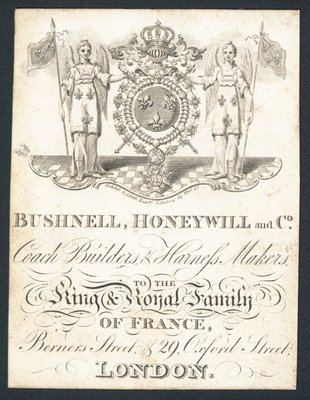 BUSHNELL, HONEYWILL and Co.
Coach Builders, & Harness Makers,
TO THE
King & Royal Family
OF FRANCE,
Berners Street, & 29, Oxford Street,
LONDON.